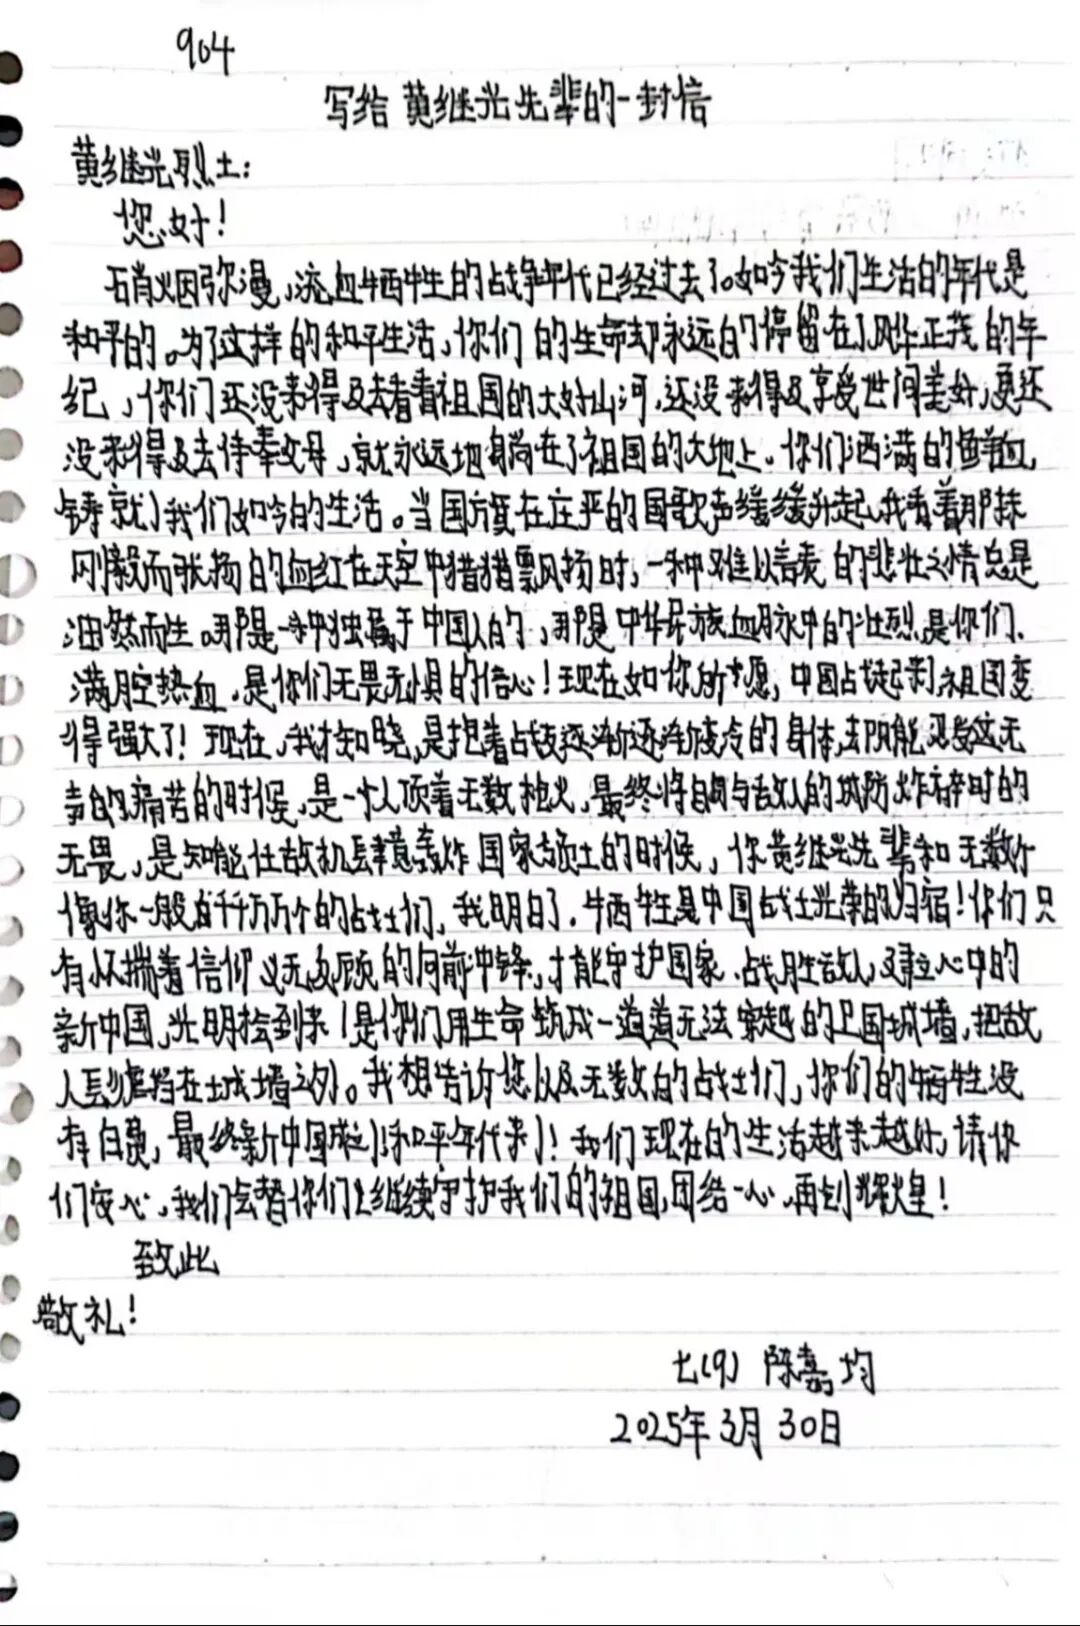 904
写给黄继光先辈的一封信
黄继光烈士：
您好！
硝火因弥漫，流血牺牲的战争年代已经过去了。如今我们生活的年代是
和平的。为了这样的和平生活，你们的生命却永远的停留在了风华正茂的年
纪，你们还没来得及去看看祖国的大好山河，还没来得及享受世间美好，更还
没来得及去侍奉父母，就永远地躺在了祖国的大地上。你们洒满的鲜血，
铸就了我们如今的生活。当国旗在庄严的国歌声缓缓升起，我看着那抹
刚毅而张扬的血红在天空中猎猎飘扬时，一种难以言表的悲壮之情总是
油然而生。那是一种独属于中国人的，那是中华民族血脉中的壮烈，是你们
满腔热血，是你们无畏无惧的信心！现在如你所愿，中国站起来了，祖国变
得强大了！现在，我才知晓，是抱着战友逐渐逐渐变冷的身体，却只能忍受这无
声的痛苦的时候，是一个人顶着无数枪火，最终将自己与敌人的城防炸碎时的
无畏，是只能任敌机肆意轰炸国家领土的时候，你黄继光先辈和无数个
像你一般的千千万万个的战士们，我明白了，牺牲是中国战士光荣的归宿！你们只
有怀揣着信仰义无反顾的向前冲锋，才能守护国家，战胜敌人，建立心中的
新中国，光明才会到来！是你们用生命筑成一道道无法穿越的卫国城墙，把敌
人丢挡在土城墙之外。我想告诉您以及无数的战士们，你们的牺牲没
有白费，最终新中国成立了！和平年代来了！我们现在的生活越来越好，请你
们安心，我们会替你们继续守护我们的祖国，团结一心，再创辉煌！
致此
敬礼！
七(9) 陈嘉均
2025年3月30日